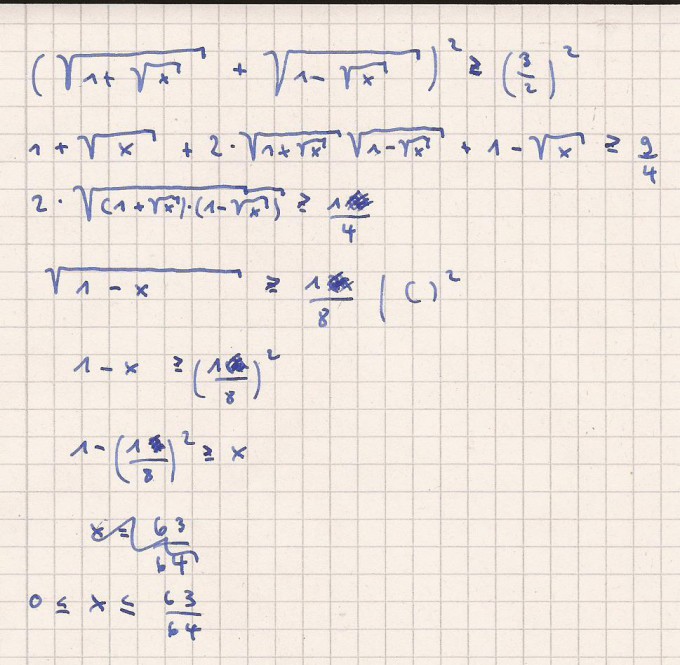 (√(1+√x) + √(1-√x))² ≥ (3/2)²
1 + √x + 2·√(1+√x) √(1-√x) + 1 - √x ≥ 9/4
2·√((1+√x)·(1-√x)) ≥ 1/4
√(1-x) ≥ 1/8 | ( )²
1-x ≥ (1/8)²
1-(1/8)² ≥ x
x = 63/64
0 ≤ x ≤ 63/64